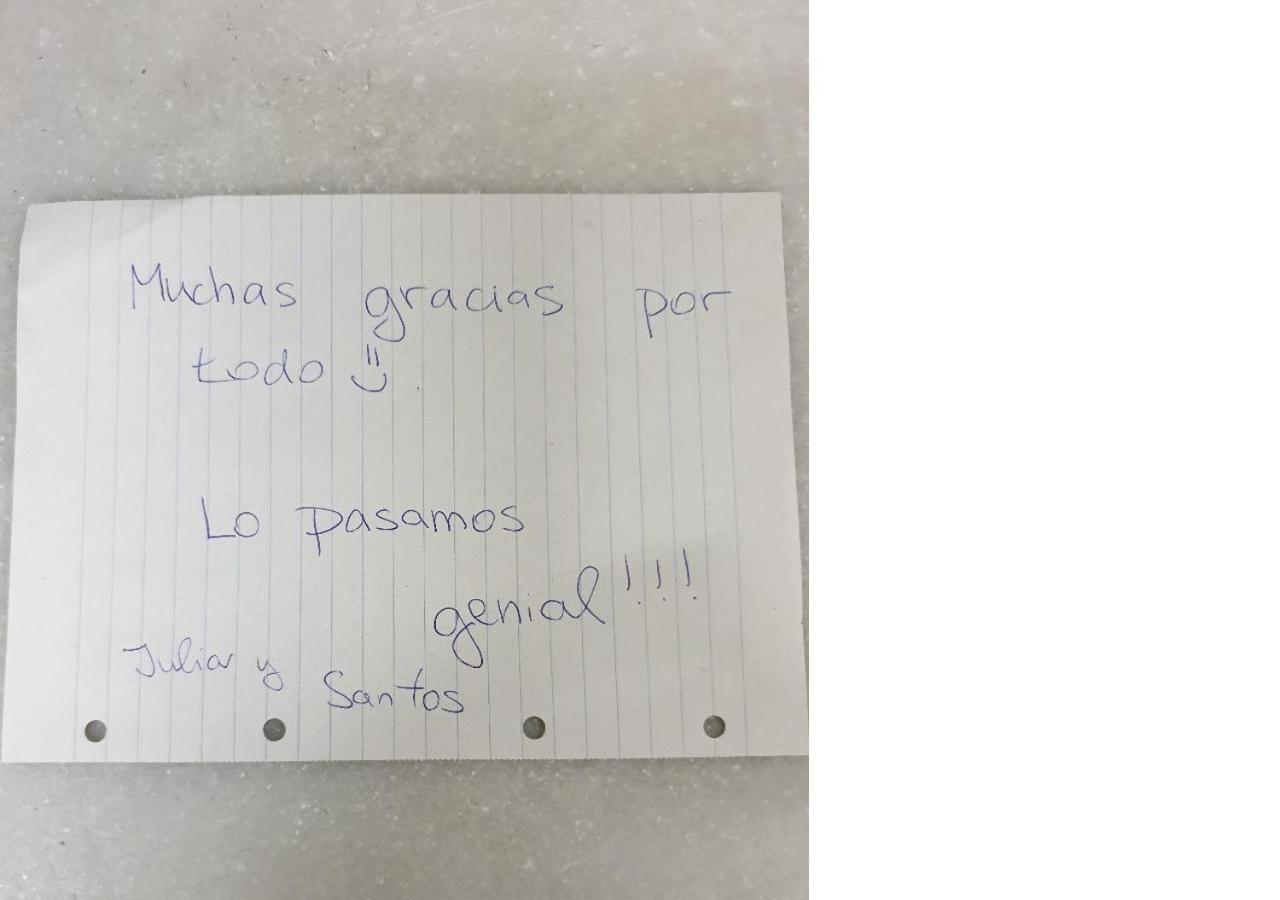 Muchas gracias por
todo =)
Lo pasamos
genial!!!
Julia y
Santos